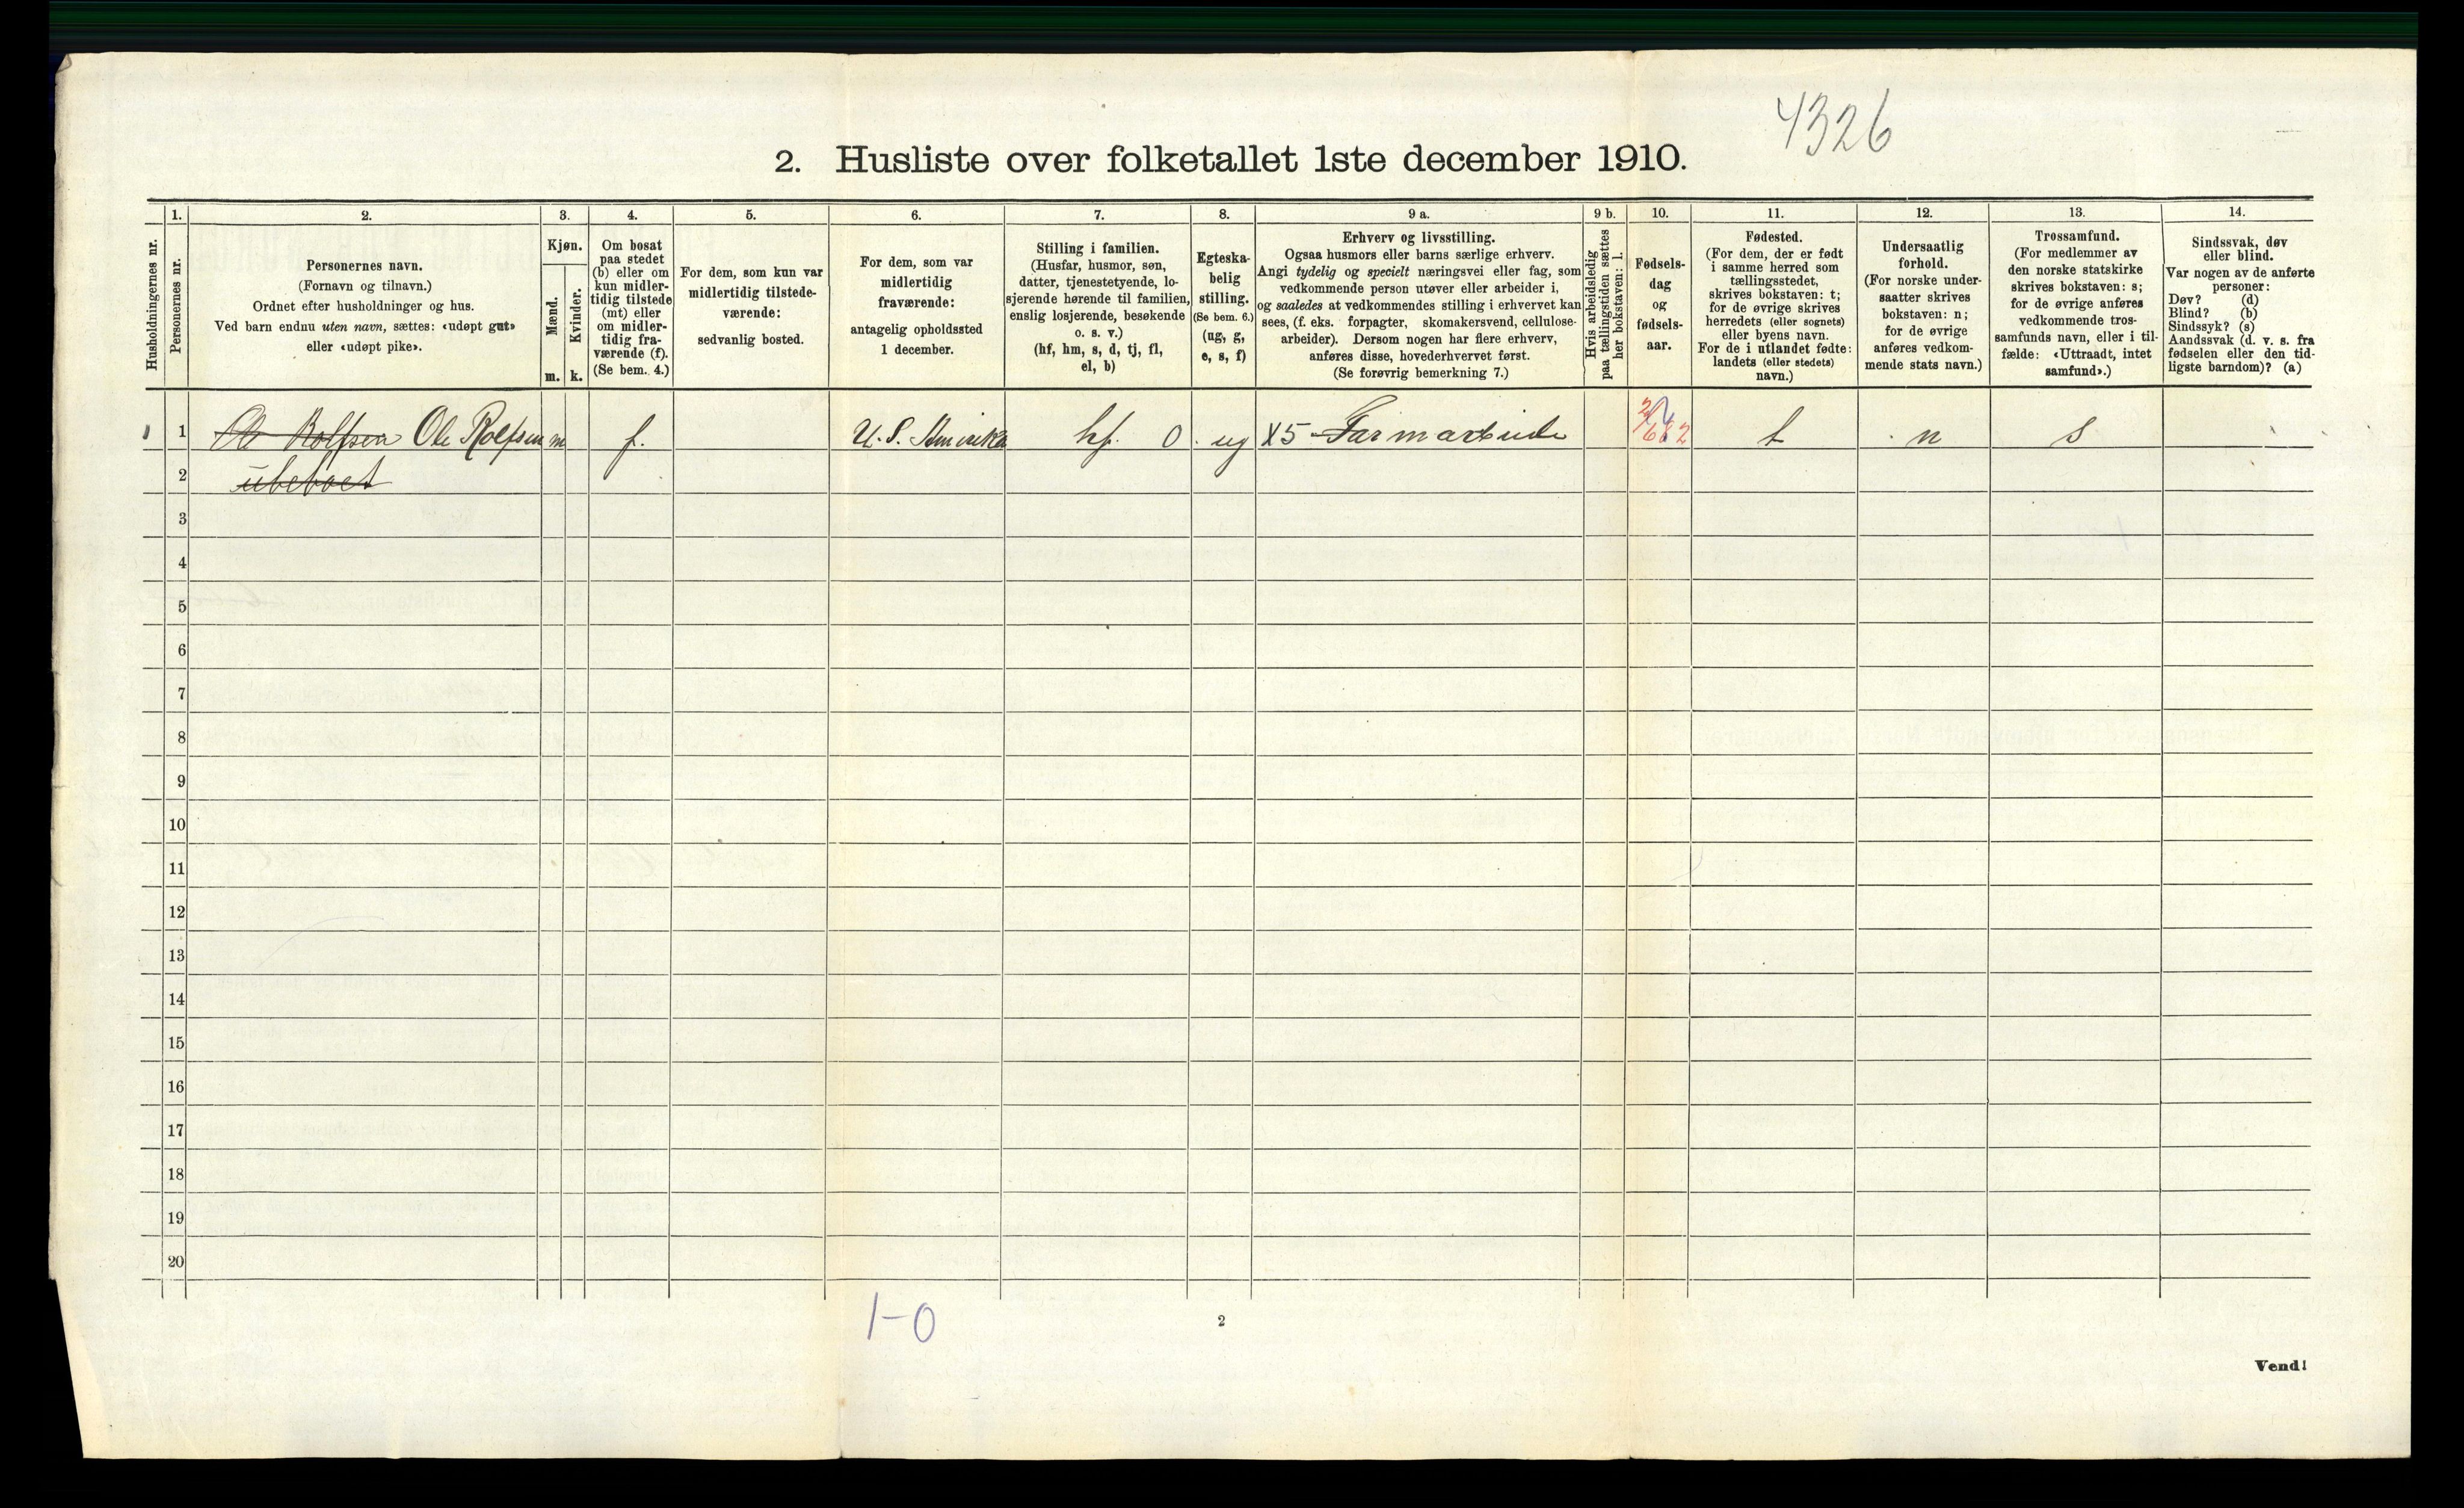 4326
2. Husliste over folketallet 1ste december 1910.
Husholdningernes nr.
1.
Personernes nr.
2.
Personernes navn.
(Fornavn og tilnavn.)
Ordnet efter husholdninger og hus.
Ved barn endnu uten navn, sættes: «udøpt gut»
eller «udøpt pike».
3.
Kjøn.
Mænd.
Kvinder.
m. k.
4.
Om bosat
paa stedet
(b) eller om
kun midler-
tidig tilstede
(mt) eller
om midler-
tidig fra-
værende (f).
(Se bem. 4.)
5.
For dem, som kun var
midlertidig tilstede-
værende:
sedvanlig bosted.
6.
For dem, som var
midlertidig
fraværende:
antagelig opholdssted
1 december.
7.
Stilling i familien.
(Husfar, husmor, søn,
datter, tjenestetyende, lo-
sjerende hørende til familien,
enslig losjerende, besøkende
o. s. v.)
(hf, hm, s, d, tj, fl,
el, b)
8.
Egteska-
belig
stilling.
(Se bem. 6.)
(ug, g,
e, s, f)
9 a.
Erhverv og livsstilling.
Ogsaa husmors eller barns særlige erhverv.
Angi tydelig og specielt næringsvei eller fag, som
vedkommende person utøver eller arbeider i,
og saaledes at vedkommendes stilling i erhvervet kan
sees, (f. eks. forpagter, skomakersvend, cellulose-
arbeider). Dersom nogen har flere erhverv,
anføres disse, hovederhvervet først.
(Se forøvrig bemerkning 7.)
9 b.
Hvis arbeidsledig
paa tællingstiden sættes
her bokstaven: l.
10.
Fødsels-
dag
og
fødsels-
aar.
11.
Fødested.
(For dem, der er født
i samme herred som
tællingsstedet,
skrives bokstaven: t;
for de øvrige skrives
herredets (eller sognets)
eller byens navn.
For de i utlandet fødte:
landets (eller stedets)
navn.)
12.
Undersaatlig
forhold.
(For norske under-
saatter skrives
bokstaven: n;
for de øvrige
anføres vedkom-
mende stats navn.)
13.
Trossamfund.
(For medlemmer av
den norske statskirke
skrives bokstaven: s;
for de øvrige anføres
vedkommende tros-
samfunds navn, eller i til-
fælde: «Uttraadt, intet
samfund».)
14.
Sindssvak, døv
eller blind.
Var nogen av de anførte
personer:
Døv? (d)
Blind? (b)
Sindssyk? (s)
Aandssvak (d. v. s. fra
fødselen eller den tid-
ligste barndom)? (a)
1 1 Ole Rolfsen Ole Rolfsen m f. U. S. Amerika hf. 0 ug X5 Farmarbeide t n s
2 ubeboet
3
4
5
6
7
8
9
10
11
12
13
14
15
16
17
18
19
20
1-0
2
Vend!